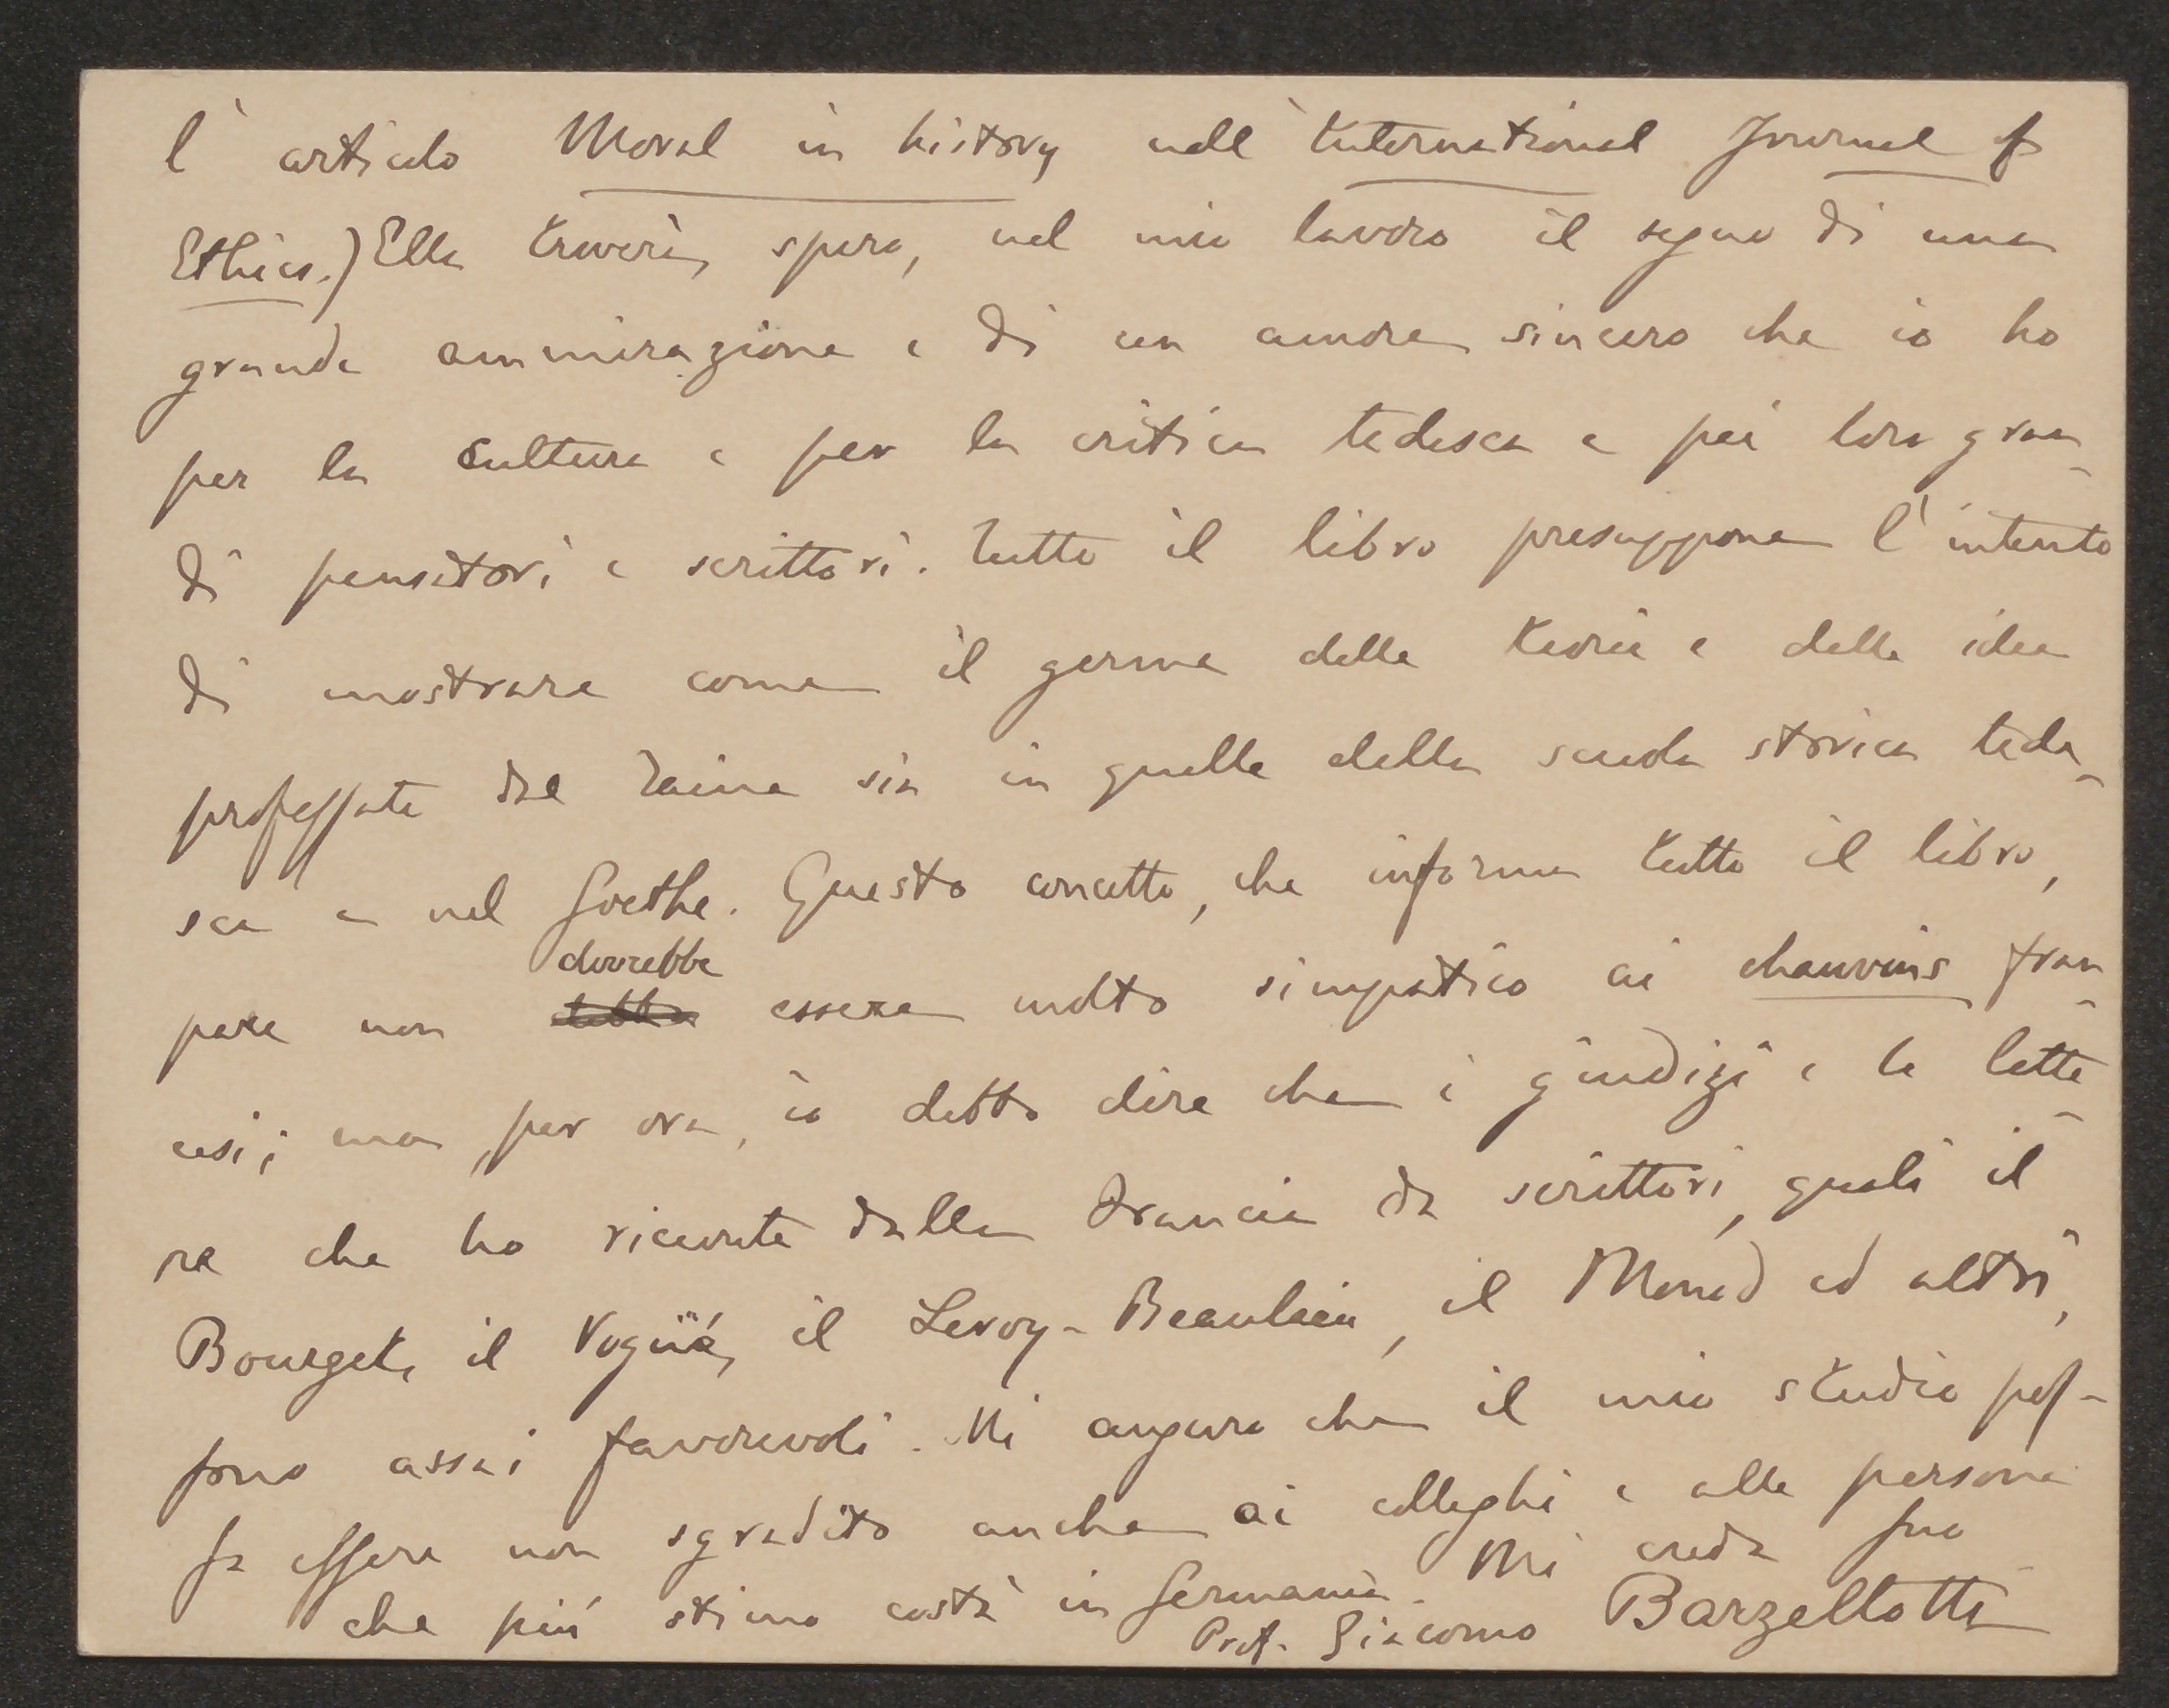 l'articolo Moral in history nell'International Journal of
Ethics.) Ella troverà, spero, nel mio lavoro il segno di una
grande ammirazione e di un amore sincero che io ho
per la cultura e per la critica tedesca e pei loro gran-
di pensatori e scrittori. Tutto il libro presuppone l'intento
di mostrare come il germe delle teorie e delle idee
professate dal Taine sia in quelle della scuola storica tede-
sca e nel Goethe. Questo concetto, che informa tutto il libro,
pare non dovrebbe essere molto simpatico ai chauvins fran-
cesi; ma, per ora, io debbo dire che i giudizi e le lette-
re che ho ricevute dalla Francia da scrittori, quali il
Bourget, il Vogüé, il Leroy-Beaulieu, il Monod ed altri,
sono assai favorevoli. Mi auguro che il mio studio pos-
sa essere non sgradito anche ai colleghi e alle persone
che più stimo costà in Germania. Mi creda suo
Prof. Giacomo Barzellotti